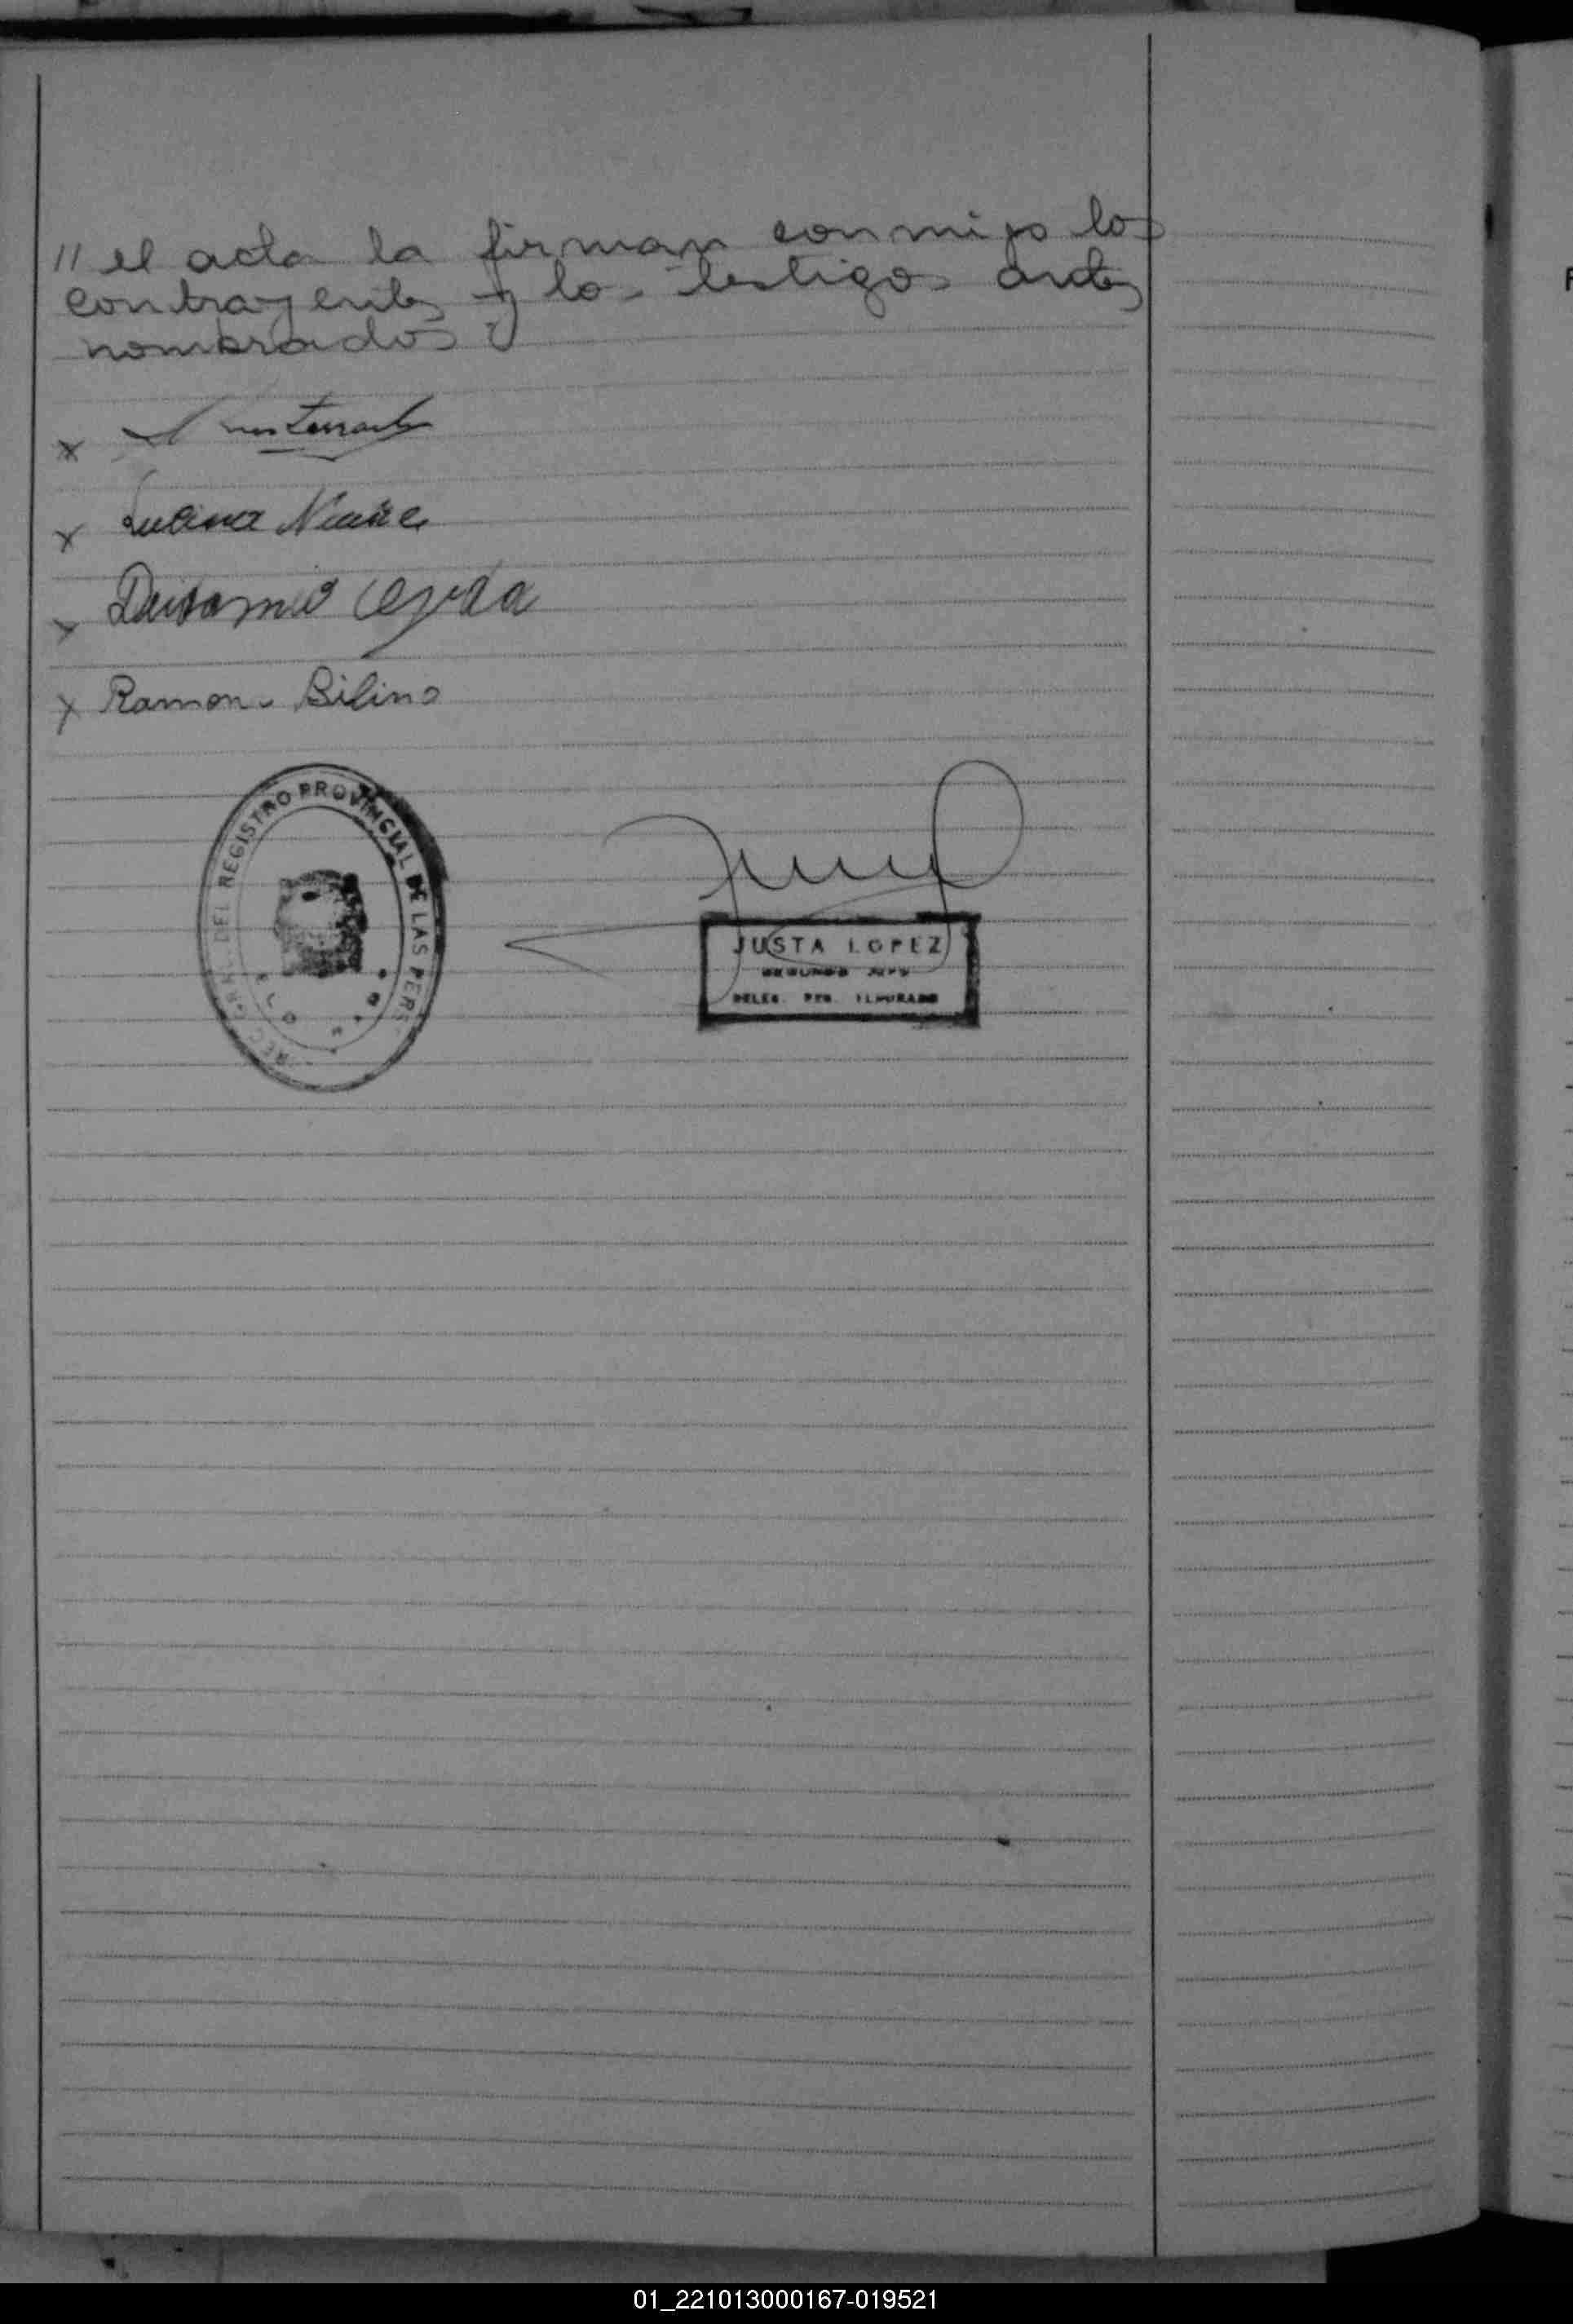 // el acta la firman conmigo los
contrayentes y los testigos antes
nombrados
x
x Lucina Nuñe
x Ojeda
x Ramon Bilino
DEL REGISTRO PROVINCIAL DE LAS PERS
JUSTA LOPEZ
SEGUNDO JEFE
DELEG. ELDORADO
01_221013000167-019521